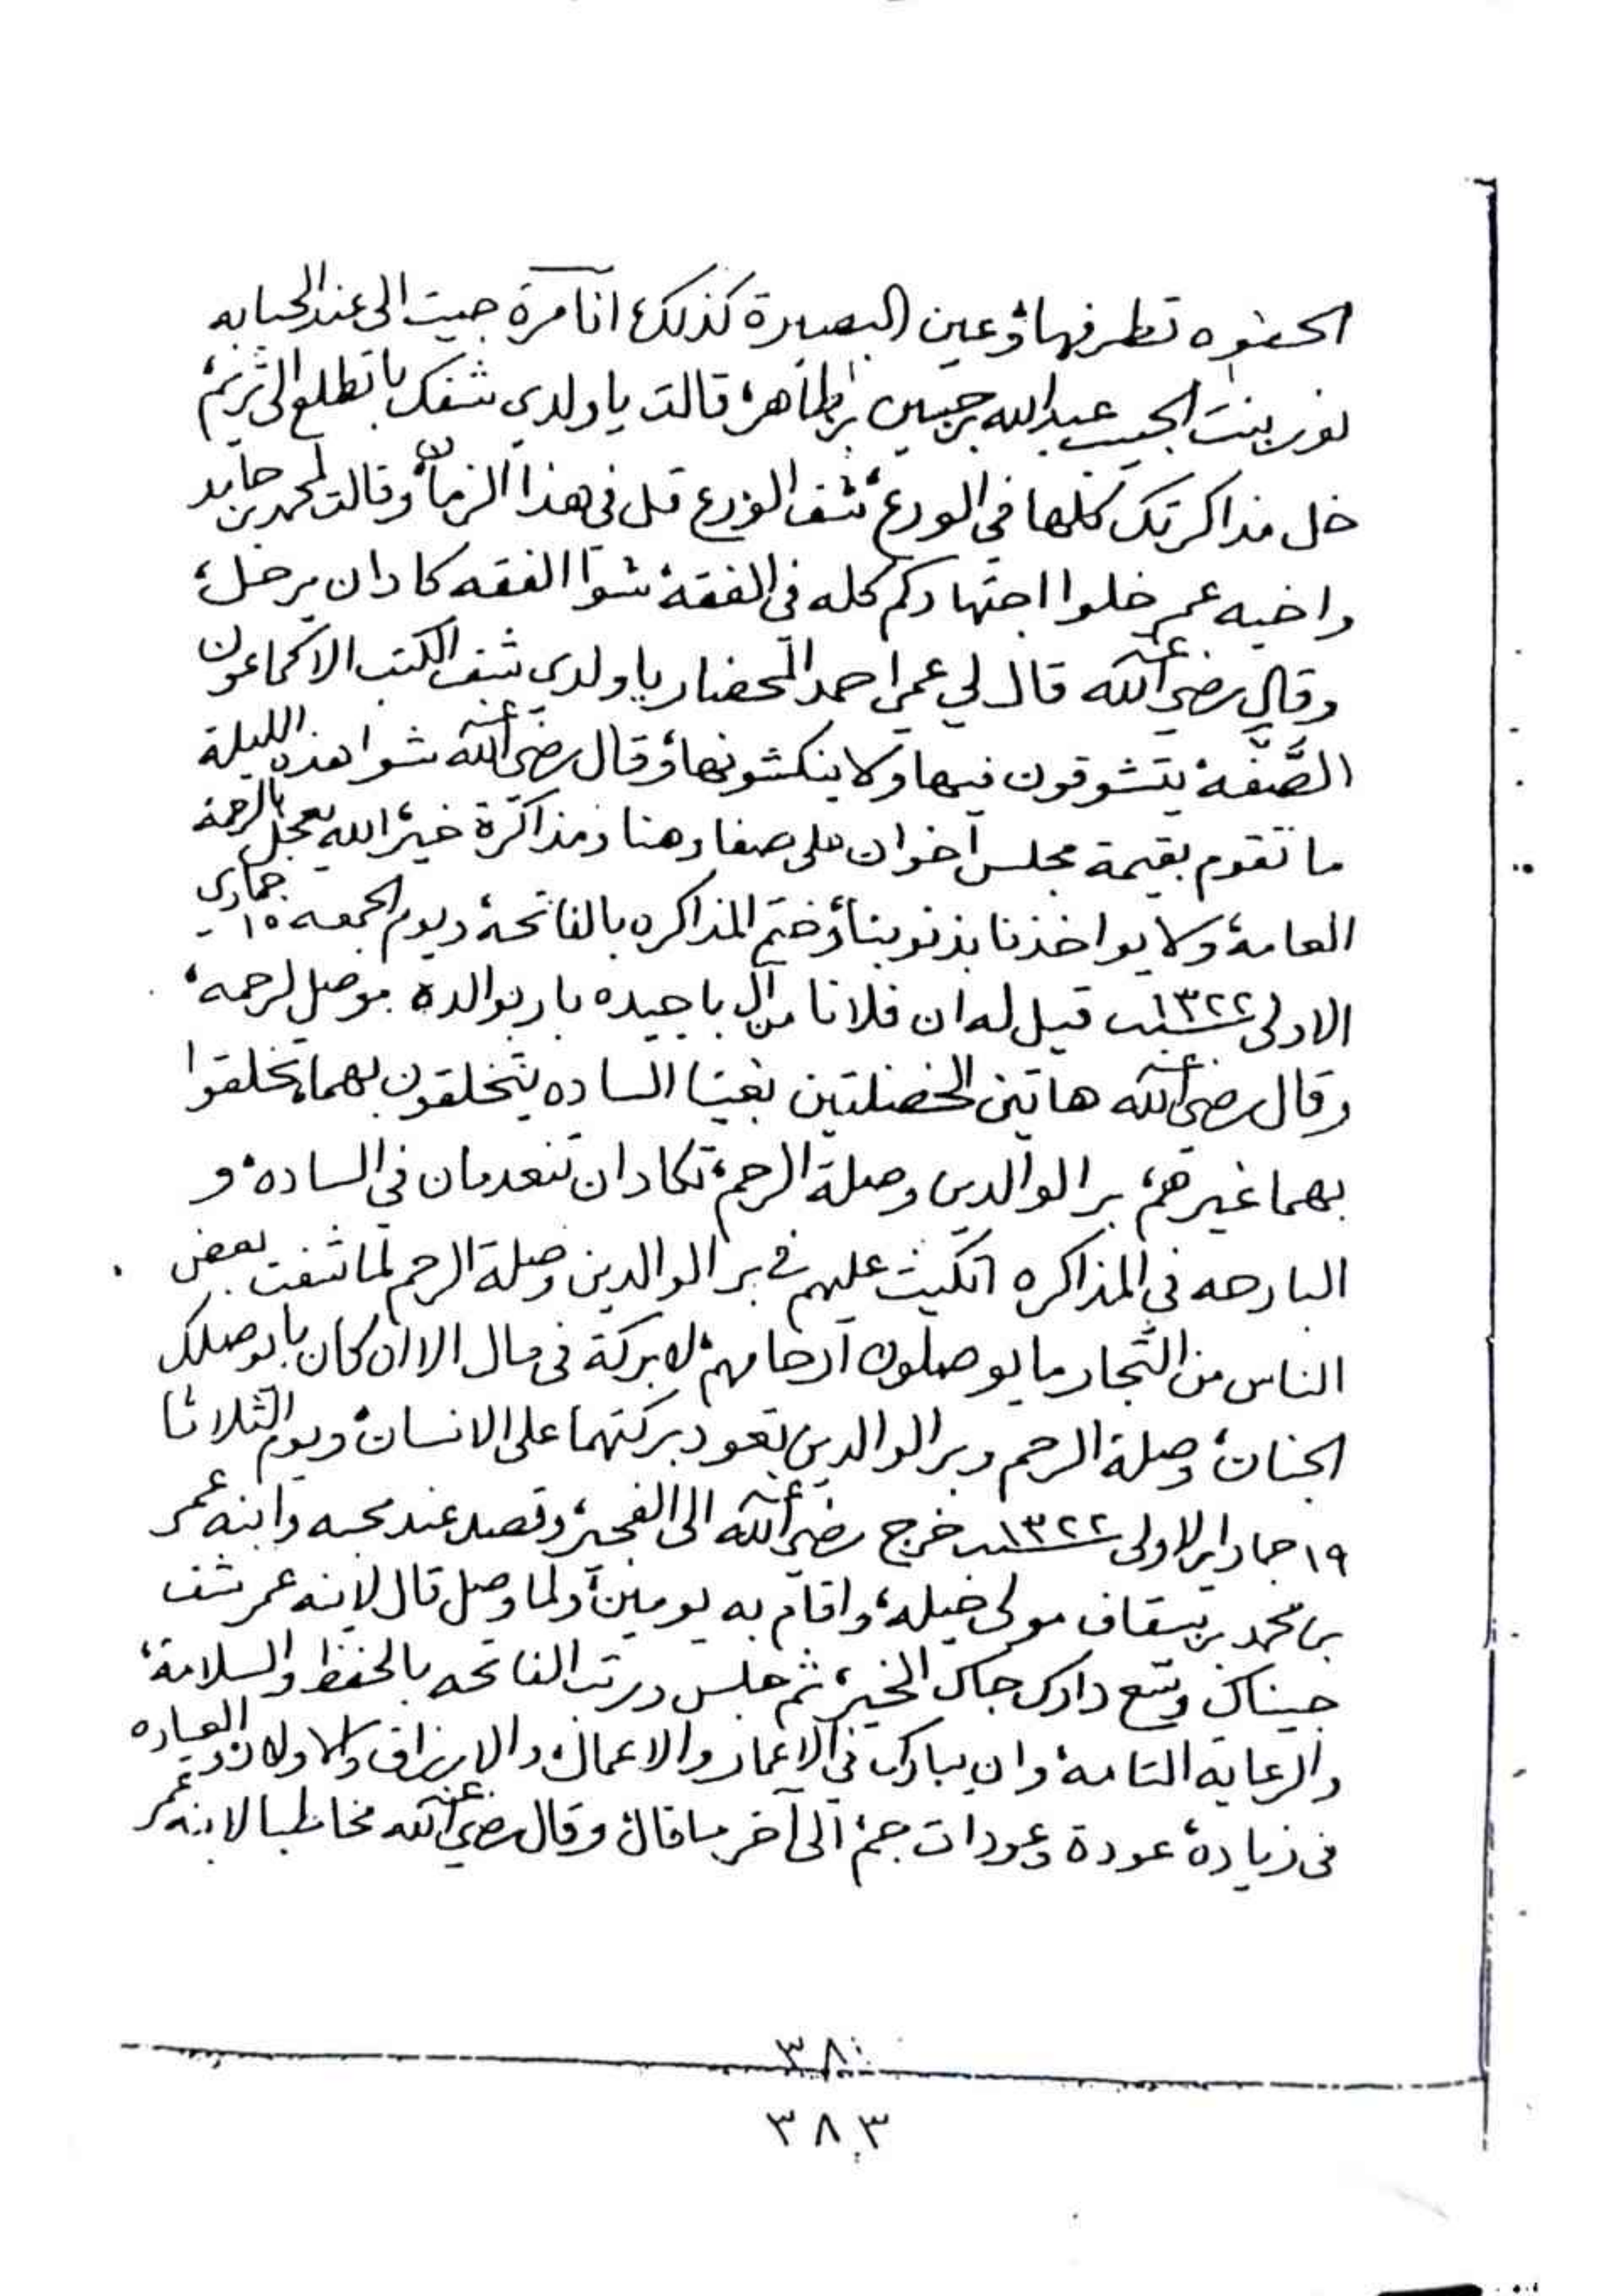 الحفوه تطرفها، وعين البصيرة كذلك، انا مرة جيت الى عند الحبابه
نور بنت الحبيب عبدالله بن حسين بن طاهر، قالت يا ولدي شفك با تطلع الى تريم،
خل مذاكرتك كلها في الورع، شف الورع قل في هذا الزمان، وقالت لمحمد بن حامد
واخيه عمر خلوا اجتهادكم كله في الفقه، شوا الفقه كاد ان يرحل،
وقال رضي الله عنه قال لي عمي احمد المحضار يا ولدي شف الكتب الا كماعون
الصّفّه يتشوقون فيها ولا ينكشونها، وقال رضي الله عنه شوا هذه الليلة
ما تقوم بقيمة مجلس اخوان على صفا وهنا ومذاكرة خير، الله يعجل بالرحمة
العامة، ولا يواخذنا بذنوبنا، وختم المذاكره بالفاتحة، ويوم الجمعه ١٥ جمادى
الاولى سنة ١٣٢٢ قيل له ان فلانا من آل باجبيده بار بوالده موصل لرحمه،
وقال رضي الله عنه هاتين الخصلتين بغينا الساده يتخلقون بهما، تخلقوا
بهما غيرهم، بر الوالدين وصلة الرحم، تكاد ان تنعدمان في الساده، و
البارحه في المذاكره اتكيت عليهم في بر الوالدين وصلة الرحم لما شفت بعض
الناس من التجار ما يوصلون ارحامهم، لا بركة في مال الا ان كان با يوصلك
الجنان، وصلة الرحم وبر الوالدين تعود بركتهما على الانسان، ويوم الثلاثا
١٩ جماد الاولى سنة ١٣٢٢ خرج رضي الله عنه الى الفجير، وقصد عند محبه وابنه عمر
بن محمد بن سقاف مولى خيله، واقام به يومين، ولما وصل قال لابنه عمر شف
جيناك وسّع دارك جاك الخير، ثم جلس ورتب الفاتحه بالحفظ والسلامة،
والرعاية التامة، وان يبارك في الاعمار والاعمال، والارزاق والاولاد، والعياده
في زيادة، عودة وعودات جم، الى آخر ما قال، وقال رضي الله عنه مخاطبا لابنه عمر
٣٨٠
٣٨٣